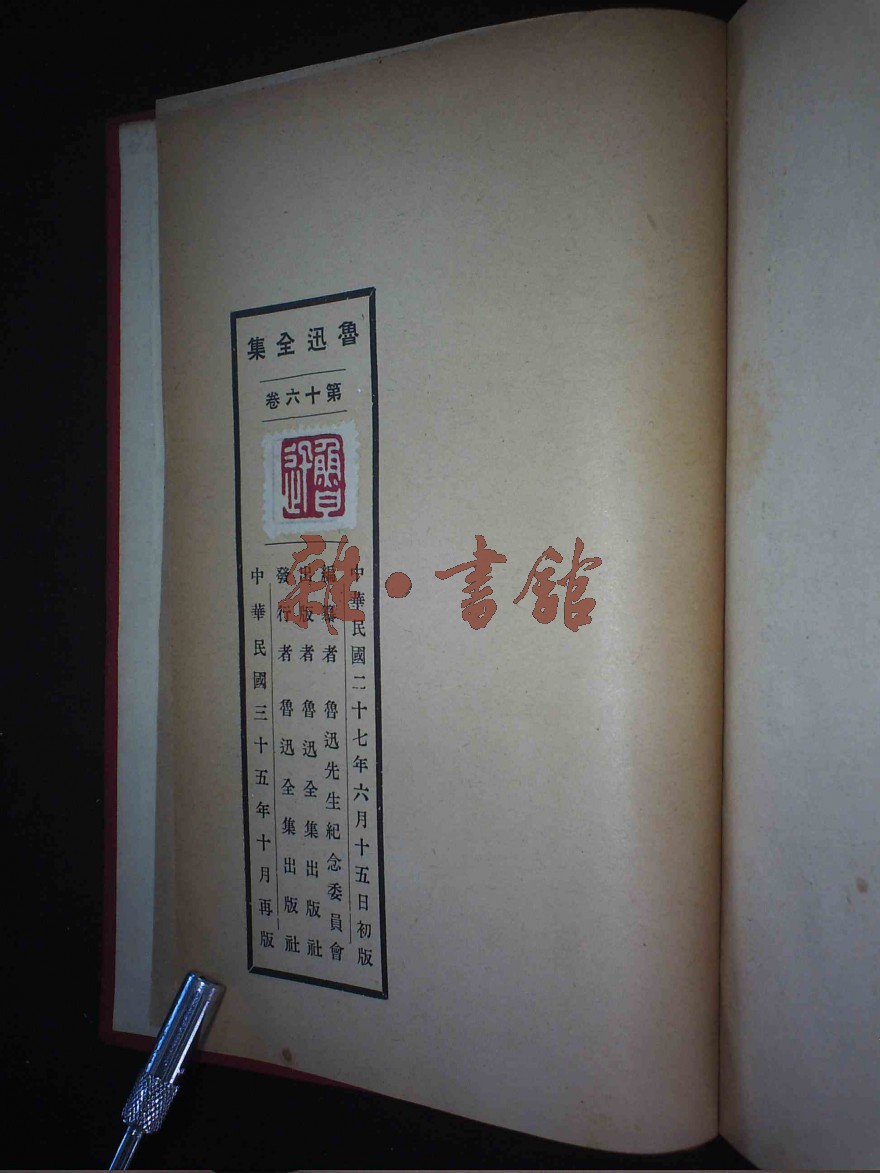 魯迅全集
第十六卷
魯迅
中華民國二十七年六月十五日初版
編纂者 魯迅先生紀念委員會
出版者 魯迅全集出版社
發行者 魯迅全集出版社
中華民國三十五年十月再版
雜·書館